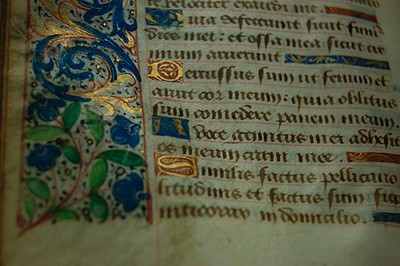 velociter exaudi me
Quia defecerunt sicut fum
dies mei : et ossa mea sicut cre
mium aruerunt
Percussus sum ut fenum et
aruit cor meum : quia oblitus
sum comedere panem meum.
A Voce gemitus mei adhesit
os meum carni mee.
Similis factus pellicano
litudinis et factus sum sic
nticorax in domicilio.